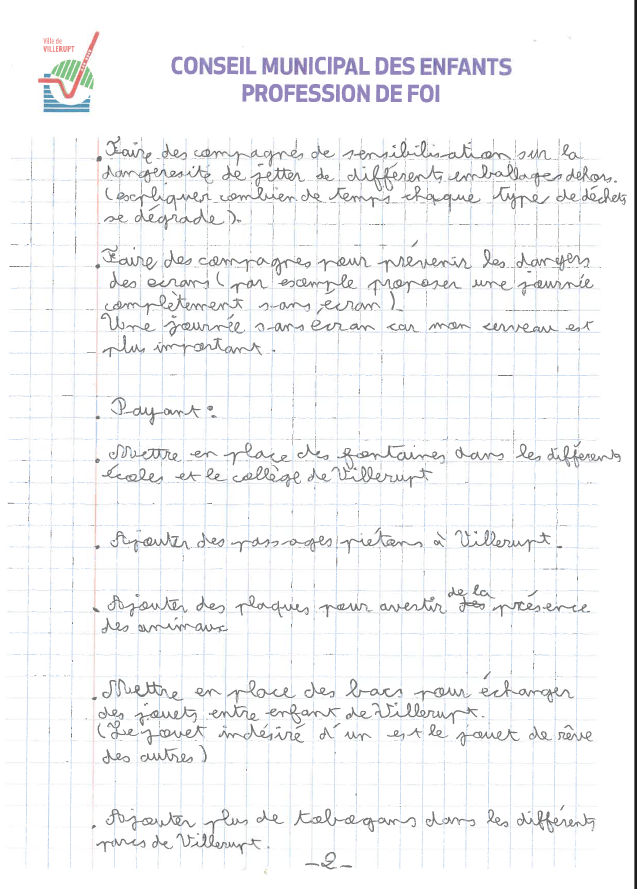 Ville de
VILLERUPT
CONSEIL MUNICIPAL DES ENFANTS
PROFESSION DE FOI
. Faire des compagnes de sensibilisation sur la
dangeresité de jetter de différents emballages dehors.
(expliquer combien de temps chaque type de déchets
se dégrade).
. Faire des compagnes pour prévenir les dangers
des ecrans (par exemple proposer une journée
complètement sans écran)
Une journée sans écran car mon cerveau est
plus important.
. Payant :
. Mettre en place des fontaines dans les différents
écoles et le collège de Villerupt
. Ajouter des passages piétons à Villerupt.
. Ajouter des plaques pour avertir de la présence
des animaux
. Mettre en place des bacs pour échanger
des jouets entre enfant de Villerupt.
(Le jouet indésiré d'un est le jouet de rêve
des autres)
. Ajouter plus de tobogans dans les différents
parcs de Villerupt.
-2-